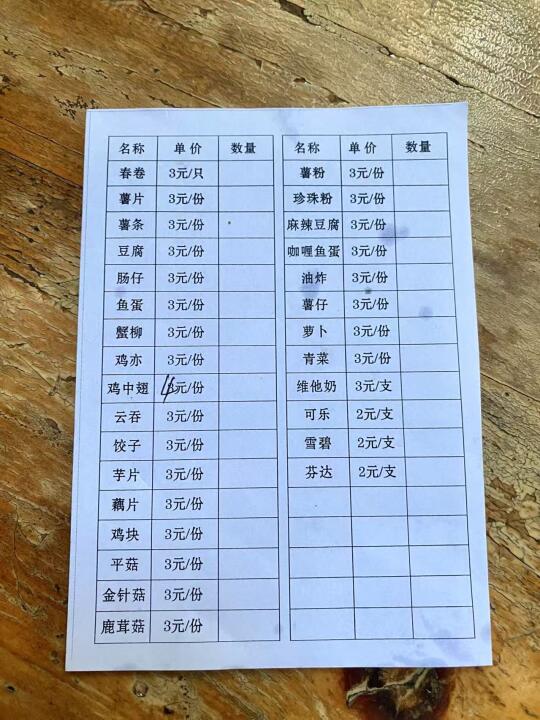 名称 单价 数量
春卷 3元/只
薯片 3元/份
薯条 3元/份
豆腐 3元/份
肠仔 3元/份
鱼蛋 3元/份
蟹柳 3元/份
鸡亦 3元/份
鸡中翅 4元/份
云吞 3元/份
饺子 3元/份
芋片 3元/份
藕片 3元/份
鸡块 3元/份
平菇 3元/份
金针菇 3元/份
鹿茸菇 3元/份
名称 单价 数量
薯粉 3元/份
珍珠粉 3元/份
麻辣豆腐 3元/份
咖喱鱼蛋 3元/份
油炸 3元/份
薯仔 3元/份
萝卜 3元/份
青菜 3元/份
维他奶 3元/支
可乐 2元/支
雪碧 2元/支
芬达 2元/支